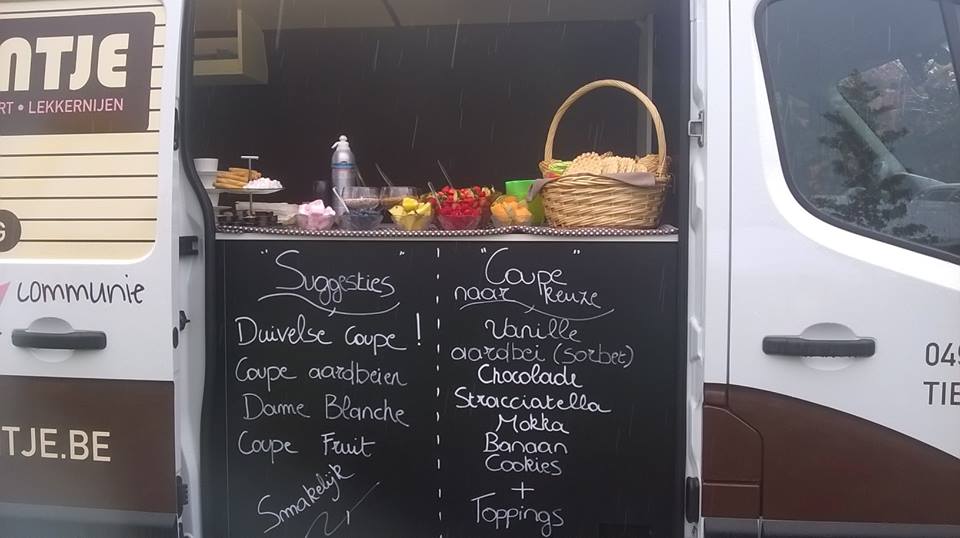 NTJE
RT • LEKKERNIJEN
G
communie
TJE.BE
"Suggesties"
Duivelse Coupe !
Coupe aardbeien
Dame Blanche
Coupe Fruit
Smakelijk
"Coupe"
naar keuze
Vanille
aardbei (sorbet)
Chocolade
Stracciatella
Mokka
Banaan
Cookies
+
Toppings
049
TIE